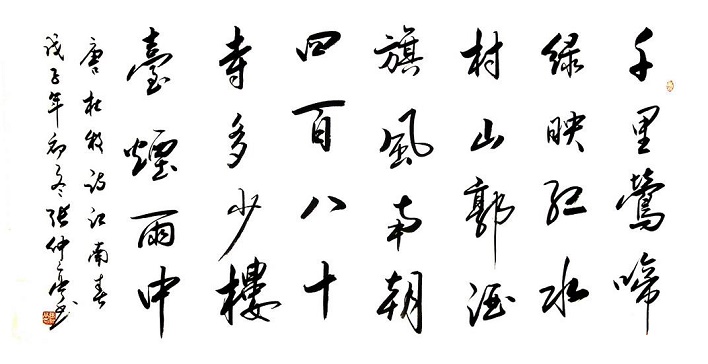 千里鶯啼
绿映红水
村山郭酒
旗風南朝
四百八十
寺多少樓
臺煙雨中
唐杜牧诗江南春
戊子年初冬张仲亭书